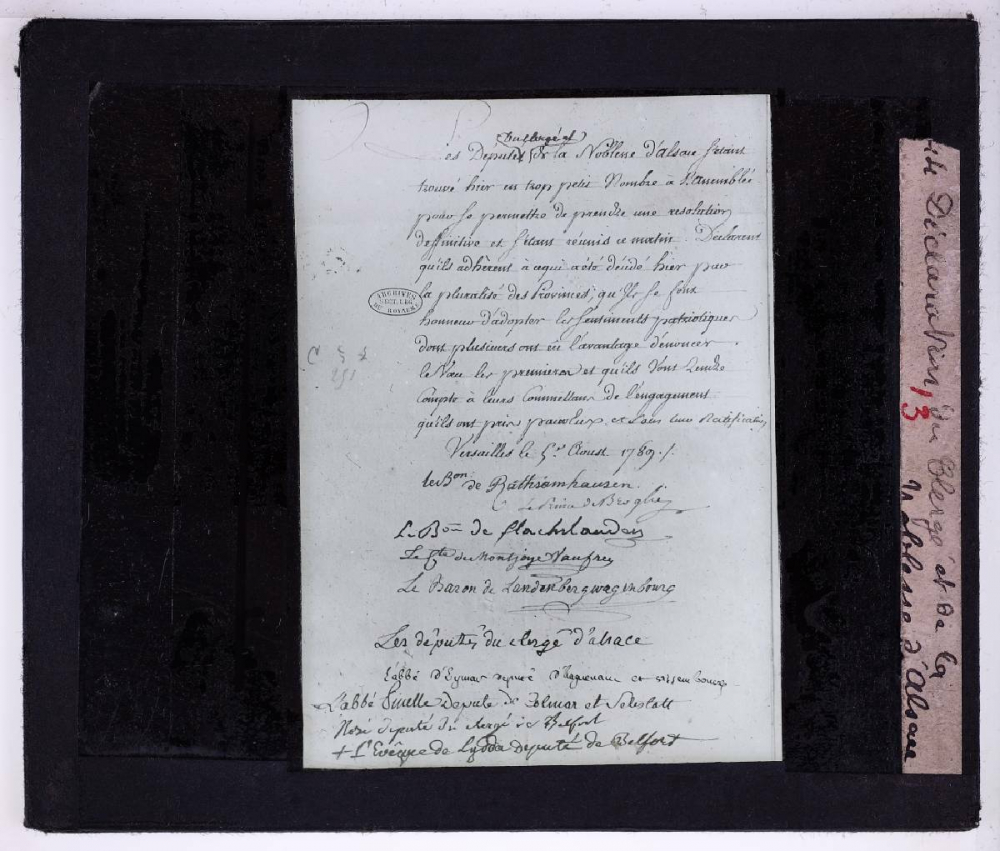 (du clergé et)
Les Deputés de la Noblesse d'alsace s'étant
trouvé hier en trop petit Nombre à l'assemblée
pour se permettre de prendre une resolution
deffinitive et s'étant réunis ce matin. Declarent
qu'ils adhèrent à ce qui a été décidé hier par
la pluralité des Provinces, qu'Ils se font
honneur d'adopter les sentiments patriotiques
dont plusieurs ont eu l'avantage d'énoncer
le Vœu les premiers et qu'ils vont Rendre
Compte à leurs Commettans de l'engagement
qu'ils ont pris pour eux et sous leur Ratification
Versailles le 5e Aoust 1789./.
le Bon de Rathsamhausen.
Le Prince de Broglie
Le Bon de flachslanden
Le Cte de Montjoye Vaufrey
Le Baron de Landenberg wagenbourg
Les députés du clergé d'alsace
L'abbé d'Eymar député d'Haguenau et wissembourg
L'abbé Louis Deputé de Colmar et Schlestatt
député du clergé de Belfort
+ L'Evêque de Lydda Deputé de Belfort
ARCHIVES
DU ROYAUME
Déclaration du Clergé et de la
noblesse d'alsace
13